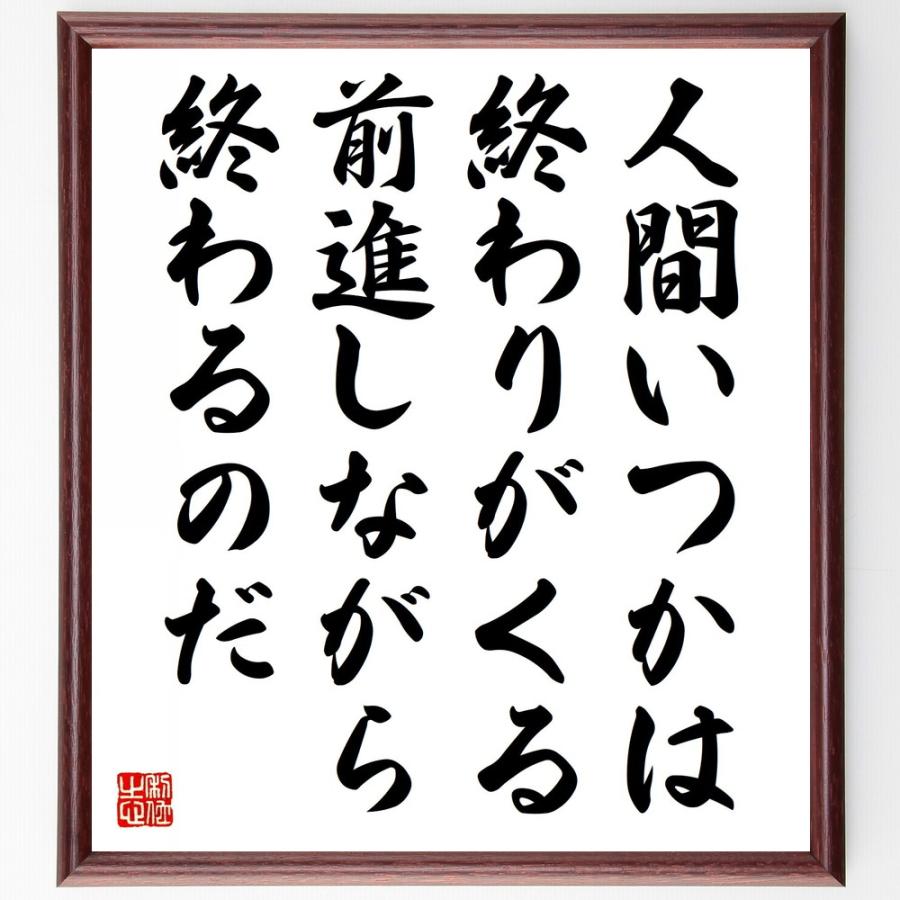 人間いつかは
終わりがくる
前進しながら
終わるのだ